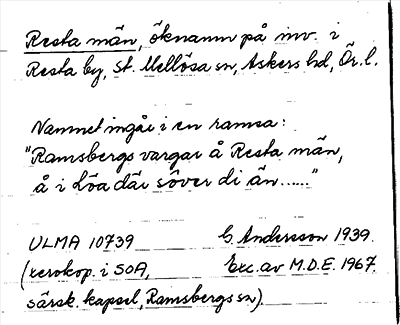 Resta män, öknamn på inv. i
Resta by, St. Mellösa sn, Askers hd, Ör. l.
Namnet ingår i en ramsa:
"Ramsbergs vargar å Resta män,
å i Löa där söver di än......"
ULMA 10739 G. Andersson 1939.
(xerokop. i SOA, Exc. av M.D.E. 1967.
särsk. kapsel, Ramsbergs sn).